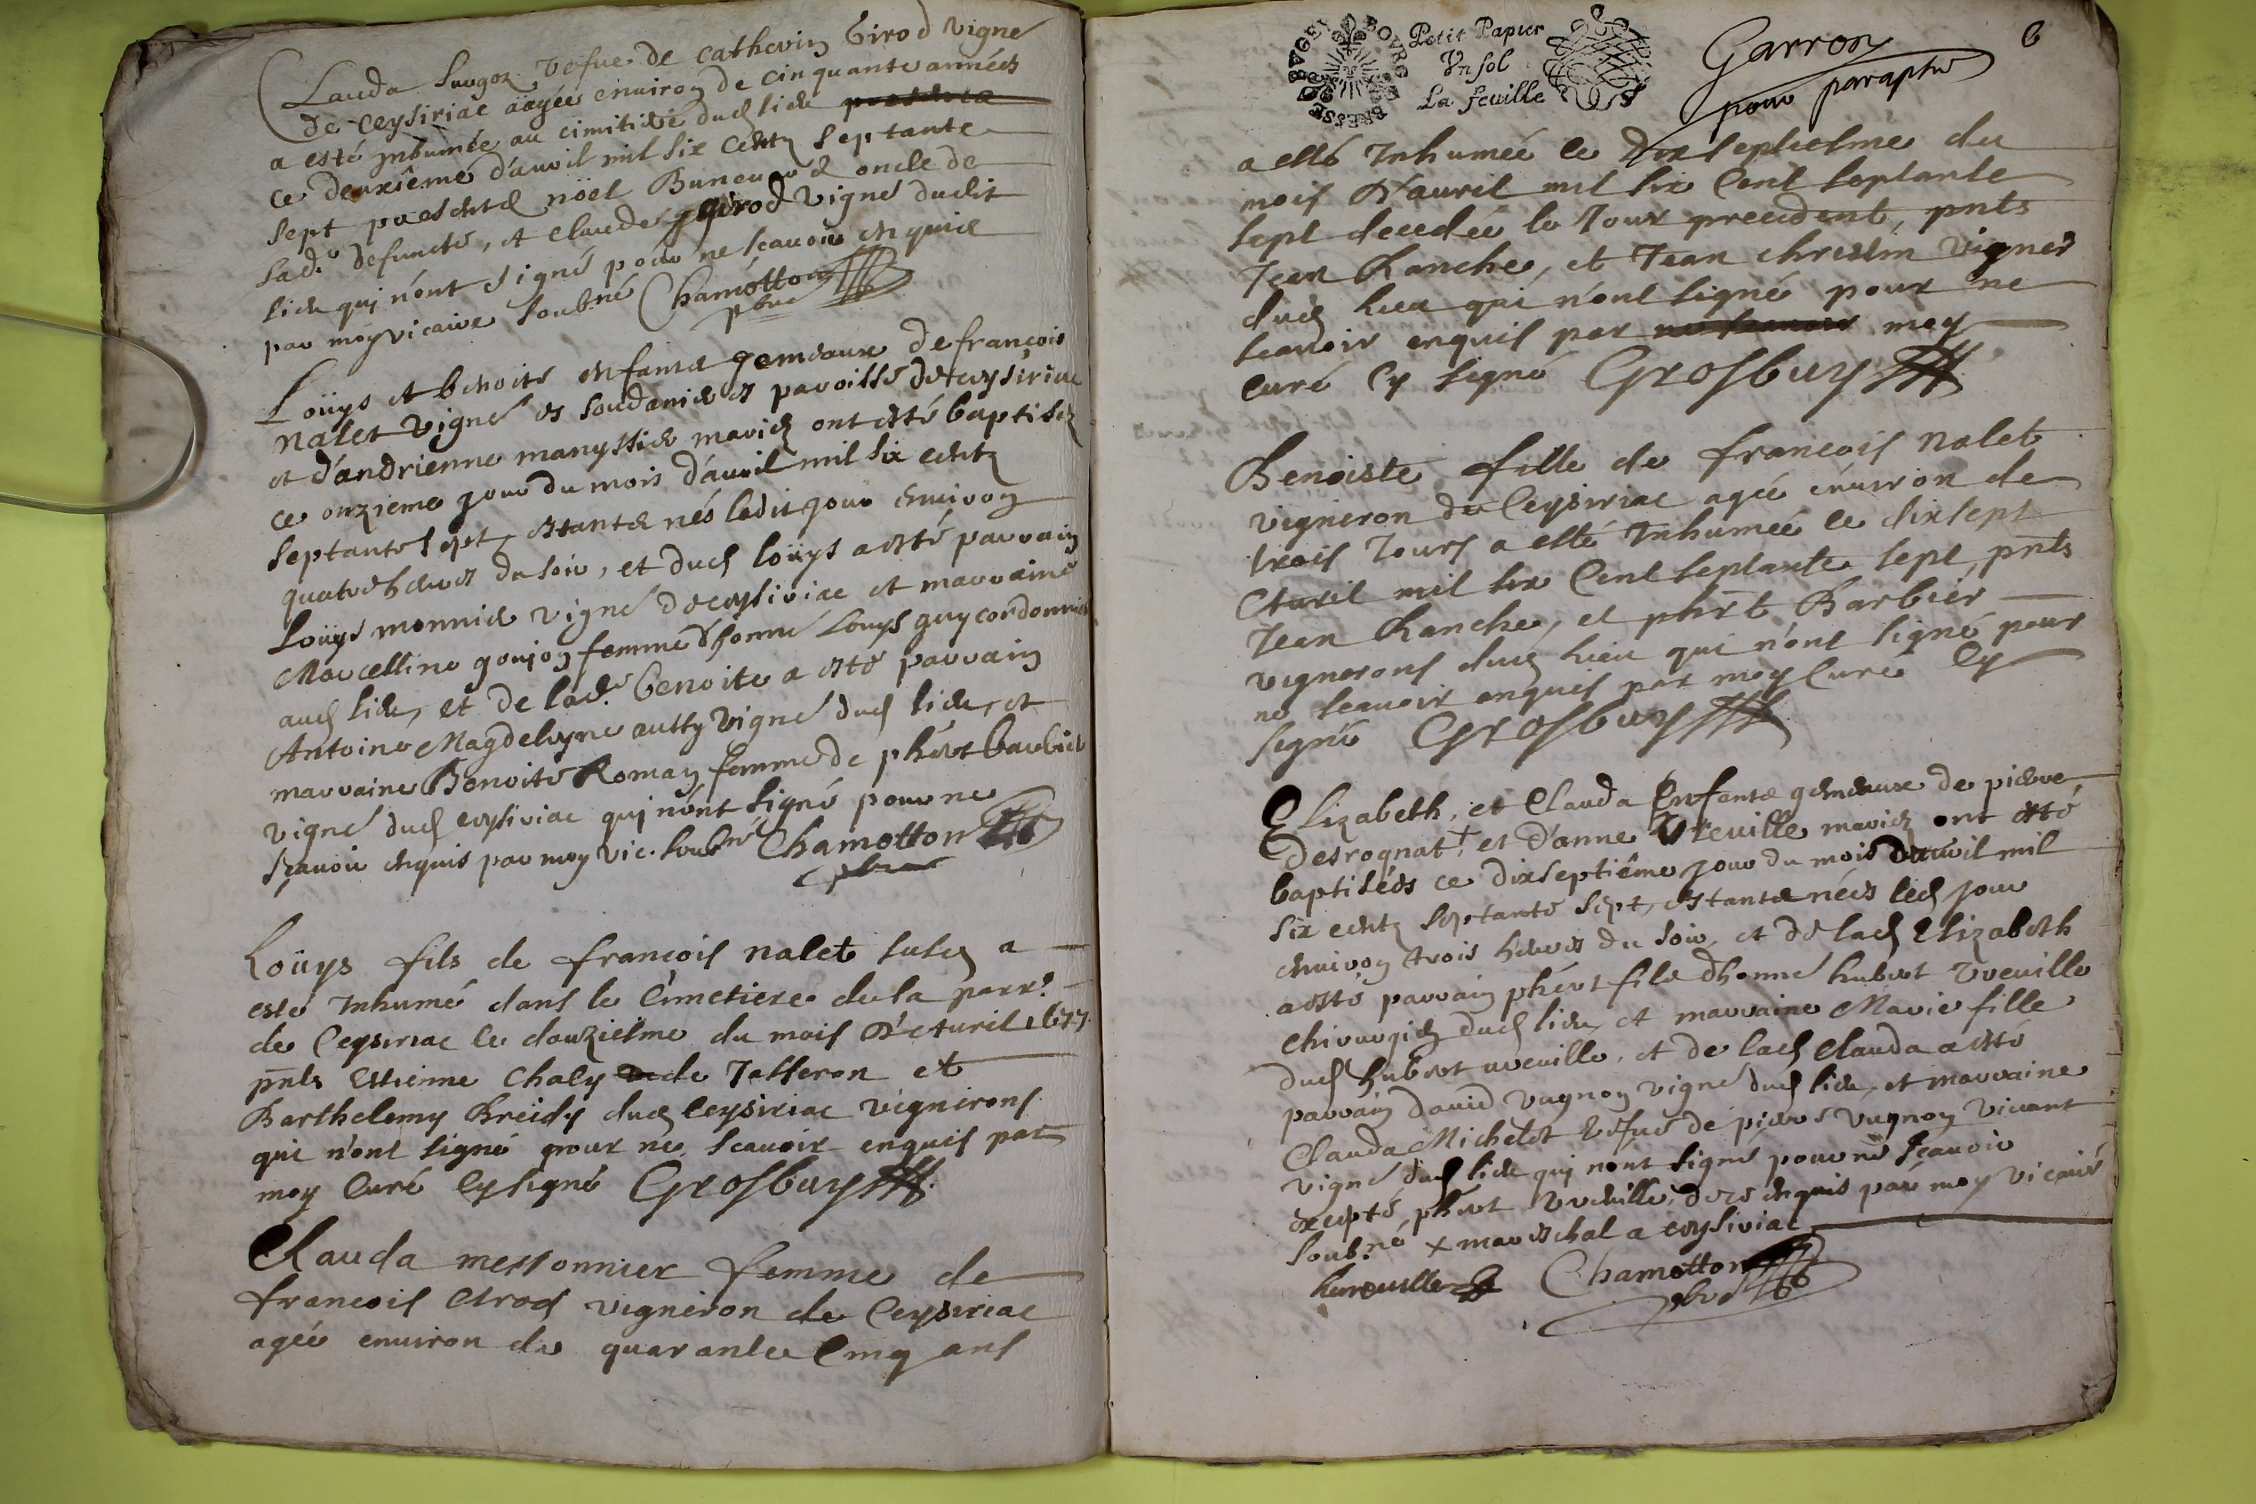 Clauda Surgoz vefue de Cathevin Girod vigne
de Ceysiriac aagée enuiron de cinquante années
a esté inhumée au cimitiere dud lieu
ce deuxiéme d'auril mil six cents septante
sept presents noël Buneur & oncle de
lad.e defuncte, et Claude Girod vigne dudit
lieu qui n'ont signé pour ne scauoir enquis
par moy vicaire soub.né Chamotton
pbre
Loüys et benoite enfants gemeaux de françois
nalet vigne es soudanieres paroisse de Ceysiriac
et d'andrienne manyssier mariez ont esté baptisez
ce onzieme jour du mois d'auril mil six cents
septante sept, estants nés ledit jour enuiron
quatre heures du soir, et dud loüys a esté parrain
Loüys monnier vigne de ceysiriac et marraine
Marcelline goujon femme d'honné Louys guy cordonnier
aud lieu, et de lad.e benoite a esté parrain
Antoine Magdeleyne autty vigne dud lieu, et
marraine Benoite Roman femme de phert barbier
vigne dud ceysiriac qui n'ont signé pour ne
sçauoir enquis par moy vic. soub.né Chamotton
pbre
Loüys fils de françois nalet susd a
esté Inhumé dans le Cimetiere de la parr.e
de Ceysiriac le douzielme du mois d'Auril 1677.
pnts Estienne Chaley de Jasseron et
Barthelemy Breïdy dud Ceysiriac vignerons
qui n'ont signé pour ne scauoir enquis par
moy Curé Cy signé Grosbuy
Clauda messonnier femme de
françois Girod vigneron de Ceysiriac
agée enuiron de quarante Cinq ans
BOVRG BRESSE BAGEI
Petit Papier
Vn sol
La feuille
Garron
pour paraphe
6
a esté Inhumée le dixseptiesme du
mois d'auril mil six Cent septante
sept decedée le Jour precedent, pnts
Jean Ranche, et Jean chrestin vigner
dud lieu qui n'ont signé pour ne
scauoir enquis par moy
curé Cy signé Grosbuy
Benoiste fille de françois nalet
vigneron de Ceysiriac agée énuiron de
trois Jours a esté Inhumée le dixsept
Auril mil six Cent septante sept, pnts
Jean Ranche, et phirt Barbier
vignerons dud lieu qui n'ont signé pour
ne scauoir enquis par moy Curé Cy
signé Grosbuy
Elizabeth, et Clauda Enfants gemeaux de pierre
Desrognat + et d'anne Vreuille mariez ont esté
baptisées ce dixseptiéme jour du mois d'auril mil
six cents septante sept, estants nées led jour
enuiron trois heures du soir, et de lad Elizabeth
a esté parrain phert fils d'honné hubert Vreuille
chirurgien dud lieu, et marraine Marie fille
dud hubert vreuille, et de lad Clauda a esté
parrain Dauid vugnon vigne dud lieu, et marraine
Clauda Michelet vefue de pierre vugnon viuant
vigne dud lieu qui n'ont signé pour ne sçauoir
excepté phert Vreuille, de ce enquis par moy vicaire
soub.né x mareschal a ceysiriac
hureuille Chamotton
pbre